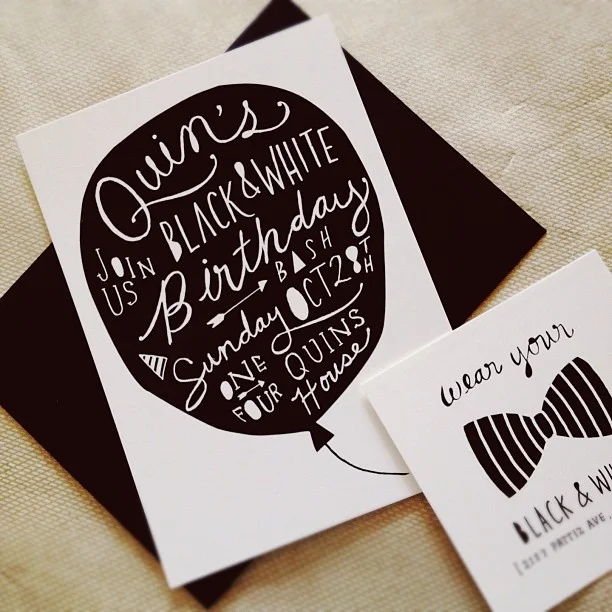 Quin's
BLACK & WHITE
JOIN US
Birthday
BASH
Sunday OCT 28TH
ONE → FOUR
QUINS House
wear your
BLACK & WHI
[2137 PATTIZ AVE.